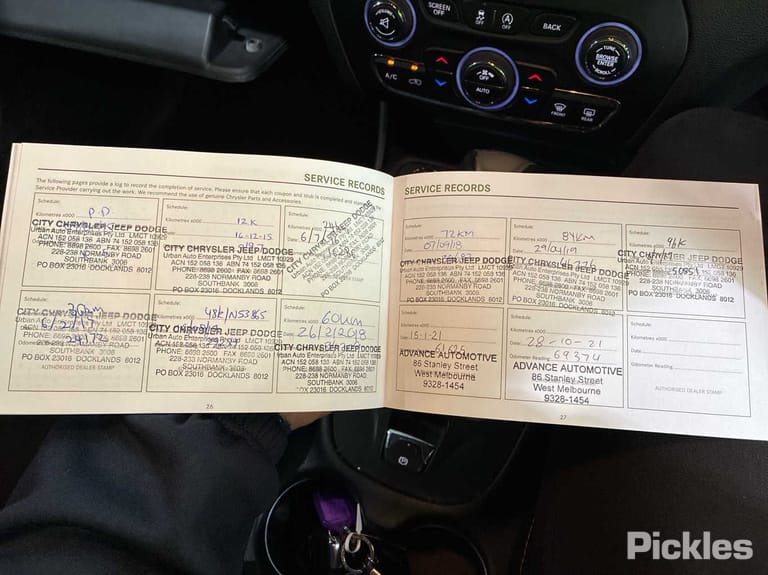 VOLUME
SCREEN
OFF
OFF
BACK
TUNE
BROWSE
ENTER
SCROLL
A/C
OFF
AUTO
FRONT
REAR
SERVICE RECORDS
The following pages provide a log to record the completion of service. Please ensure that each coupon and stub is completed and stamped by the
Service Provider carrying out the work. We recommend the use of genuine Chrysler Parts and Accessories.
Schedule:
P.D
Kilometres x000
CITY CHRYSLER JEEP DODGE
Urban Auto Enterprises Pty Ltd LMCT 10929
ACN 152 058 136 ABN 74 152 058 136
PHONE: 8698 2600 FAX 8698 2601
228-238 NORMANBY ROAD
SOUTHBANK 3006
PO BOX 23016 DOCKLANDS 8012
Schedule:
12K
Kilometres x000
16-12-15
CITY CHRYSLER JEEP DODGE
Urban Auto Enterprises Pty Ltd LMCT 10929
ACN 152 058 136 ABN 74 152 058 136
PHONE: 8698 2600 FAX 8698 2601
228-238 NORMANBY ROAD
SOUTHBANK 3006
PO BOX 23016 DOCKLANDS 8012
Schedule:
24K
Kilometres x000
Date:
CITY CHRYSLER JEEP DODGE
Schedule:
CITY CHRYSLER JEEP DODGE
PHONE: 8698 2600 FAX 8698 2601
228-238 NORMANBY ROAD
SOUTHBANK 3006
PO BOX 23016 DOCKLANDS 8012
AUTHORISED DEALER STAMP
Schedule:
48K/N53865
CITY CHRYSLER JEEP DODGE
Urban Auto Enterprises Pty Ltd LMCT 10929
ACN 152 058 136 ABN 74 152 058 136
PHONE: 8698 2600 FAX 8698 2601
228-238 NORMANBY ROAD
SOUTHBANK 3006
PO BOX 23016 DOCKLANDS 8012
Schedule:
60km
Kilometres x000
Date: 26/2/2018
CITY CHRYSLER JEEP DODGE
Urban Auto Enterprises Pty Ltd LMCT 10929
ACN 152 058 136 ABN 74 152 058 136
PHONE: 8698 2600 FAX 8698 2601
228-238 NORMANBY ROAD
SOUTHBANK 3006
PO BOX 23016 DOCKLANDS 8012
26
SERVICE RECORDS
Schedule:
Kilometres x000 72KM
Date: 07/09/18
CITY CHRYSLER JEEP DODGE
Urban Auto Enterprises Pty Ltd LMCT 10929
ACN 152 058 136 ABN 74 152 058 136
PHONE: 8698 2600 FAX 8698 2601
228-238 NORMANBY ROAD
SOUTHBANK 3006
PO BOX 23016 DOCKLANDS 8012
Schedule:
Kilometres x000 84KM
Date: 29/04/19
CITY CHRYSLER JEEP DODGE
Urban Auto Enterprises Pty Ltd LMCT 10929
ACN 152 058 136 ABN 74 152 058 136
PHONE: 8698 2600 FAX 8698 2601
228-238 NORMANBY ROAD
SOUTHBANK 3006
PO BOX 23016 DOCKLANDS 8012
Schedule:
96k
Kilometres x000
CITY CHRYSLER JEEP DODGE
Urban Auto Enterprises Pty Ltd LMCT 10929
ACN 152 058 136 ABN 74 152 058 136
PHONE: 8698 2600 FAX 8698 2601
228-238 NORMANBY ROAD
SOUTHBANK 3006
PO BOX 23016 DOCKLANDS 8012
Schedule:
Kilometres x000
15-1-21
61625
ADVANCE AUTOMOTIVE
86 Stanley Street
West Melbourne
9328-1454
Schedule:
Kilometres x000
Date: 28-10-21
Odometer Reading 69374
ADVANCE AUTOMOTIVE
86 Stanley Street
West Melbourne
9328-1454
Schedule:
Kilometres x000
Date:
Odometer Reading
AUTHORISED DEALER STAMP
27
Pickles